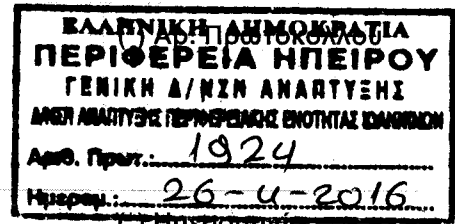 ΕΛΛΗΝΙΚΗ ΔΗΜΟΚΡΑΤΙΑ
() Αρ. Πρωτοκόλλου
ΠΕΡΙΦΕΡΕΙΑ ΗΠΕΙΡΟΥ
ΓΕΝΙΚΗ Δ/ΝΣΗ ΑΝΑΠΤΥΞΗΣ
ΔΝΣΗ ΑΝΑΠΤΥΞΗΣ ΠΕΡΙΦΕΡΕΙΑΚΗΣ ΕΝΟΤΗΤΑΣ ΙΩΑΝΝΙΝΩΝ
Αριθ. Πρωτ.: 1924
Ημερομ.: 26-4-2016